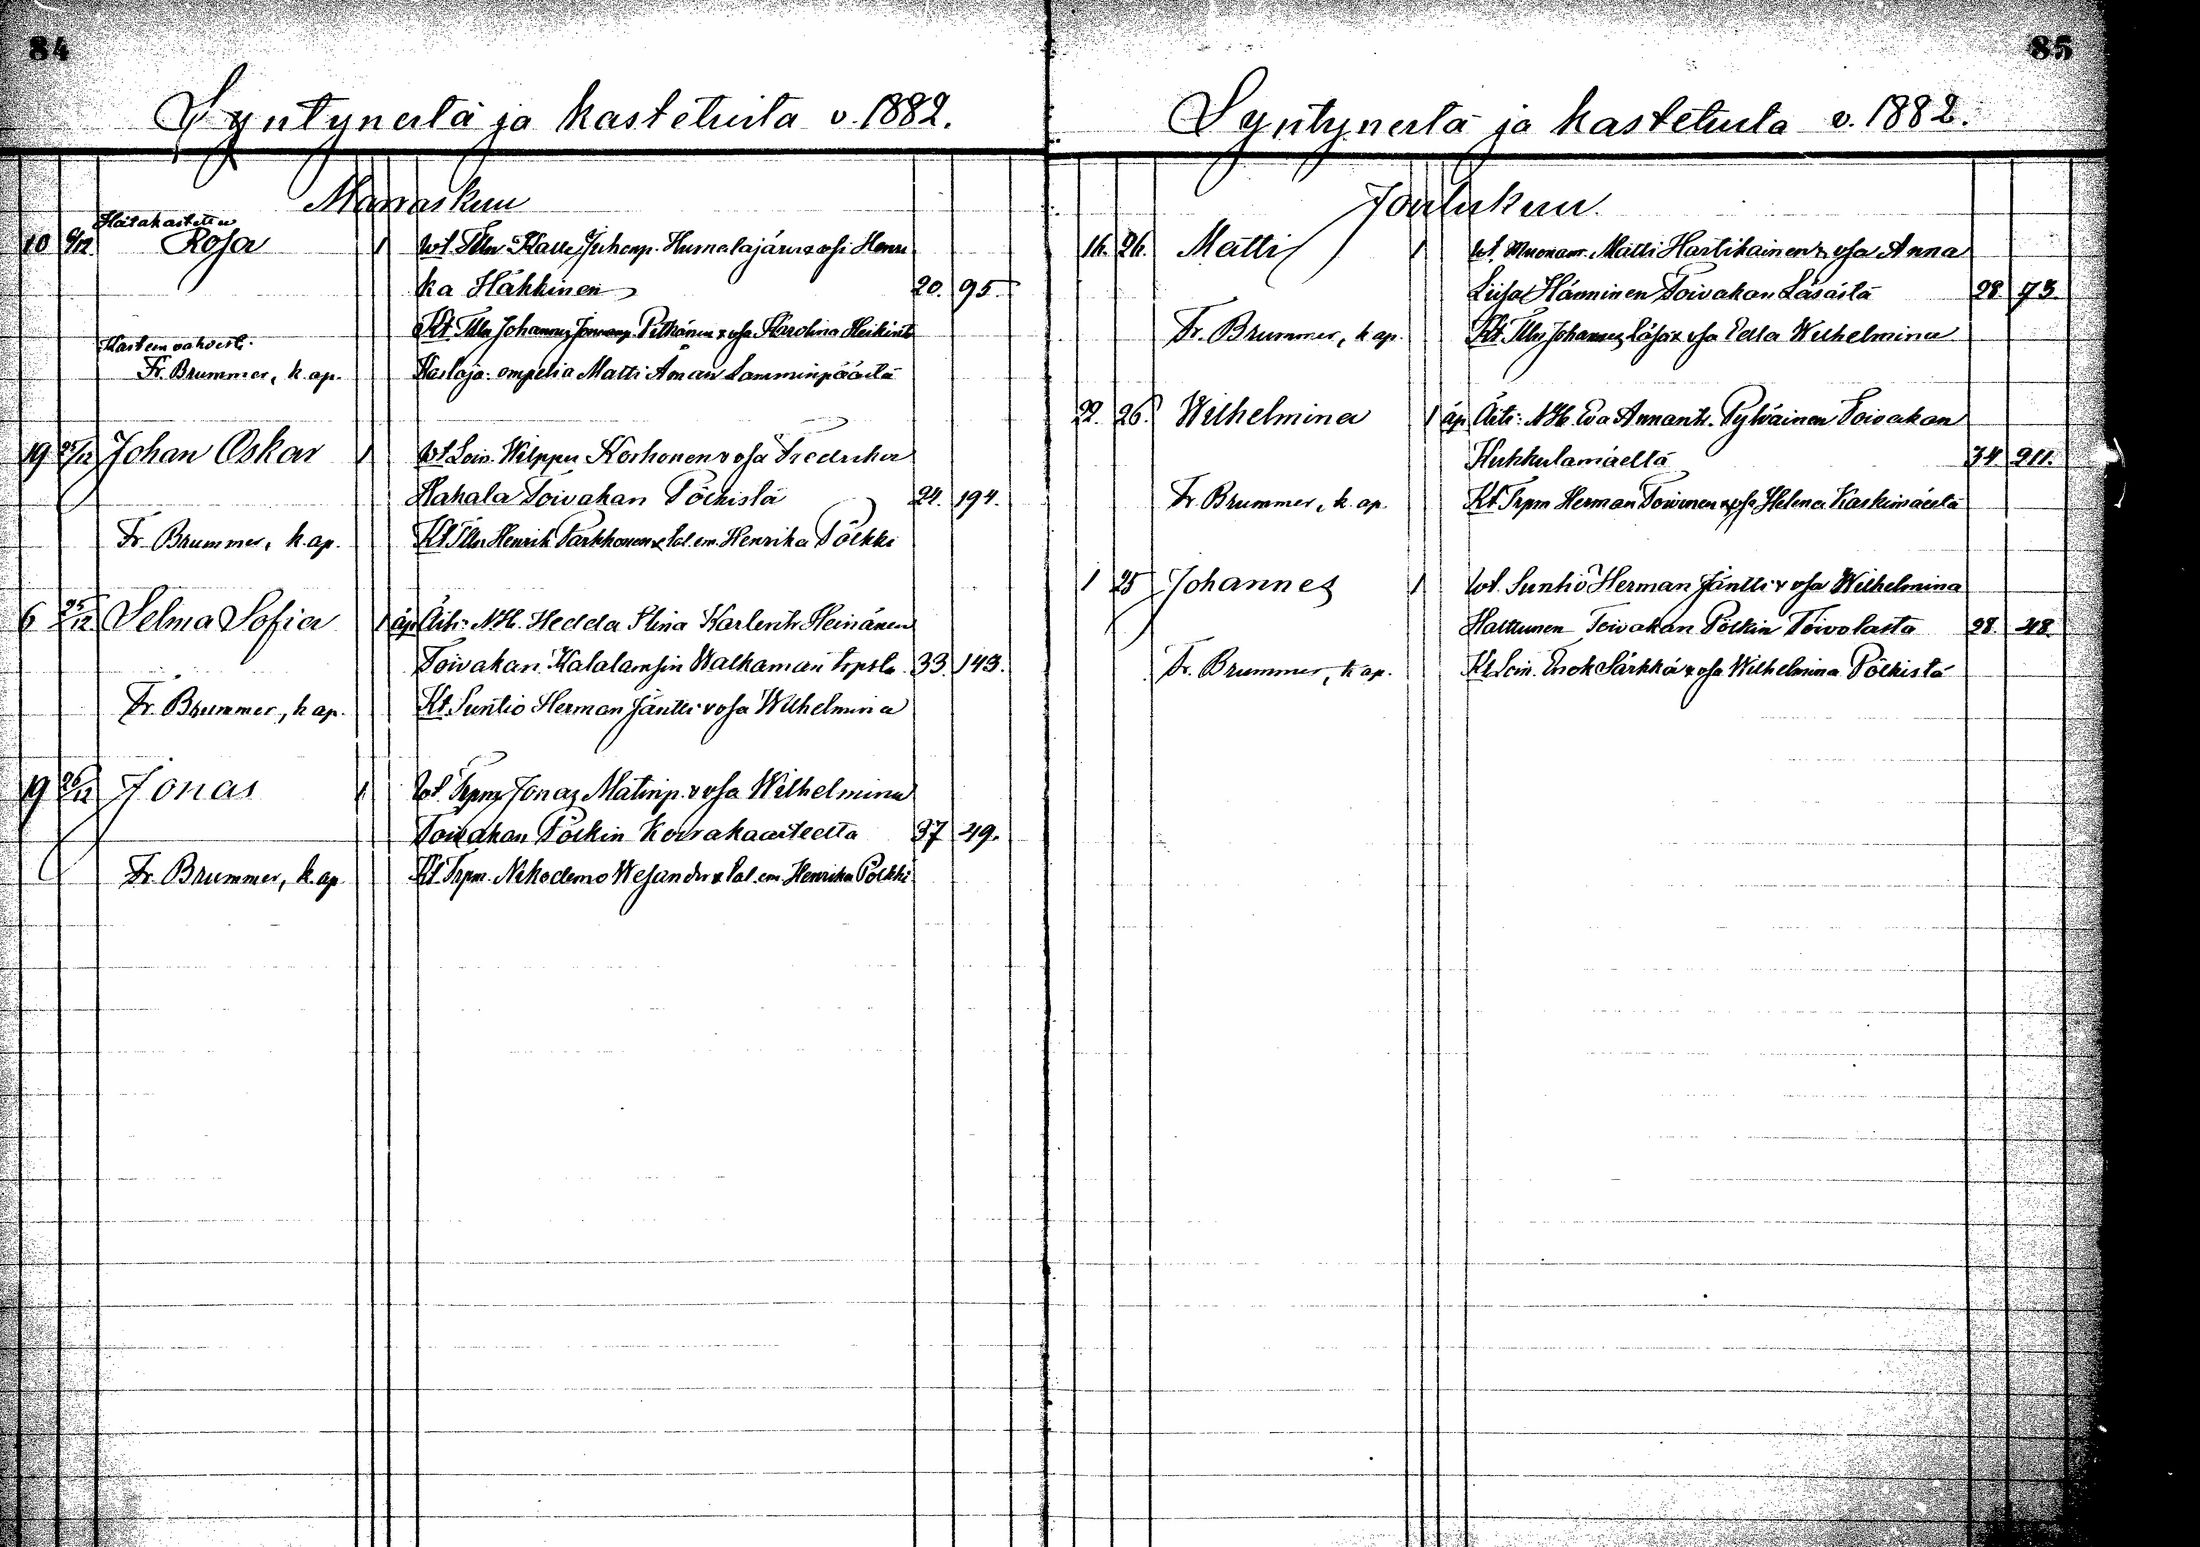 84
Syntyneitä ja kastetuita v. 1882.
Marraskuu
Hätäkastettu
10 9/12 Rosa 1 Wt. Tlln Kalle Juhonp. Humalajärvi & vsa Henri
ka Häkkinen 20. 95.
Kt. Tlln Johannes Joonanp. Pitkänen & vsa Karolina Heikint.
Kasteen vahvist.
Fr. Brummer, k. ap. Kastaja: ompelia Matti Åman Lamminpäästä
19 25/12 Johan Oskar 1 Wt. Loin. Wilppu Korhonen & vsa Fredrika
Kahala Toivakan Pölkistä 24. 194.
Fr. Brummer, k. ap. Kt. Tlln Henrik Parkkonen & tal. em. Henrika Pölkki
6 25/12 Selma Sofia 1 äp. Äiti: N.H. Hedda Stina Karlent. Heinänen
Toivakan Kalalamsin Walkaman trpsta 33. 143.
Fr. Brummer, k ap. Kt. Suntio Herman Jäntti & vsa Wilhelmina
19 26/12 Jonas 1 Wt. Trpm Jonas Matinp. & vsa Wilhelmina
Toivakan Pölkin Koivakaarteelta 37 49.
Fr. Brummer, k. ap. Kt. Trpm. Nikodemo Wesander & tal. em. Henrika Pölkki
85
Syntyneitä ja kastetuita v. 1882.
Joulukuu.
16. 26. Matti 1 Wt. Muonam. Matti Hartikainen & vsa Anna
Liisa Hänninen Toivakan Läsästä 28 73.
Fr. Brummer, k ap. Kt. Tlln Johannes Läsä & vsa Edla Wilhelmina
22. 26. Wilhelmina 1 äp. Äiti: N.H. Eva Annant. Pylväinen Toivakan
Hukkulamäeltä 34 211.
Fr. Brummer, k. ap. Kt. Trpm Herman Toivonen & vsa Helena Kaskimäeltä
1 25 Johannes 1 Wt. Suntio Herman Jäntti & vsa Wilhelmina
Halttunen Toivakan Pölkin Toivolasta 28. 48.
Fr. Brummer, k ap. Kt. Loin. Enok Särkkä & vsa Wilhelmina Pölkistä